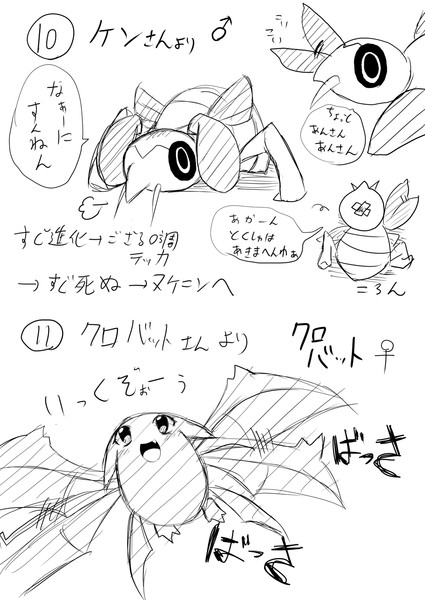 ⑩ ケンさんより ♂
なぁーに
すんねん
ちょっと
あんさん
あんさん
あかーん
とくしゅは
あきまへんやぁ
ころん
すぐ進化→ござる口調
テッカ
→すぐ死ぬ→ヌケニンへ
⑪ クロバットさんより
クロ
バット ♀
いっくぞぉーう
ばっさ
ばっさ